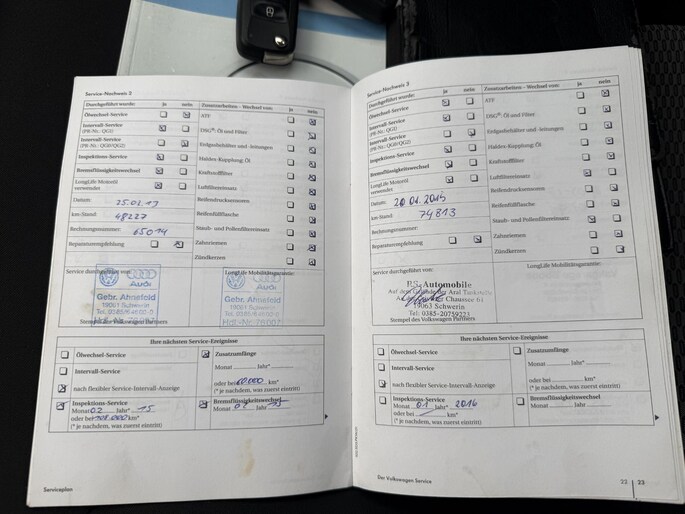 Service-Nachweis 3
Durchgeführt wurde: ja nein
Ölwechsel-Service
Intervall-Service
(PR-Nr.: QG1)
Intervall-Service
(PR-Nr.: QG0/QG2)
Inspektions-Service
Bremsflüssigkeitswechsel
LongLife Motoröl
verwendet
Datum:
km-Stand: 48227
Rechnungsnummer: 65014
Reparaturempfehlung
Zusatzarbeiten – Wechsel von: ja nein
ATF
DSG®: Öl und Filter
Erdgasbehälter und -leitungen
Haldex-Kupplung: Öl
Kraftstofffilter
Luftfiltereinsatz
Reifendrucksensoren
Reifenfüllflasche
Staub- und Pollenfiltereinsatz
Zahnriemen
Zündkerzen
Service durchgeführt von:
LongLife Mobilitätsgarantie:
Audi
Gebr. Ahnefeld
19061 Schwerin
Stempel des Volkswagen Partners
Audi
Gebr. Ahnefeld
19061 Schwerin
Ihre nächsten Service-Ereignisse
Ölwechsel-Service
Intervall-Service
nach flexibler Service-Intervall-Anzeige
Inspektions-Service
Monat 02 Jahr* 15
oder bei 108.000 km*
(* je nachdem, was zuerst eintritt)
Zusatzumfänge
Monat Jahr*
oder bei km*
(* je nachdem, was zuerst eintritt)
Bremsflüssigkeitswechsel
Monat 02 Jahr 15
Serviceplan
Service-Nachweis 3
Durchgeführt wurde: ja nein
Ölwechsel-Service
Intervall-Service
(PR-Nr.: QG1)
Intervall-Service
(PR-Nr.: QG0/QG2)
Inspektions-Service
Bremsflüssigkeitswechsel
LongLife Motoröl
verwendet
Datum: 20.01.2015
km-Stand: 74813
Rechnungsnummer:
Reparaturempfehlung
Zusatzarbeiten – Wechsel von: ja nein
ATF
DSG®: Öl und Filter
Erdgasbehälter und -leitungen
Haldex-Kupplung: Öl
Kraftstofffilter
Luftfiltereinsatz
Reifendrucksensoren
Reifenfüllflasche
Staub- und Pollenfiltereinsatz
Zahnriemen
Zündkerzen
Service durchgeführt von:
LongLife Mobilitätsgarantie:
Automobile
Auf dem Gelände der Aral Tankstelle
Chaussee 61
19063 Schwerin
Tel. 0385-20759223
Stempel des Volkswagen Partners
Ihre nächsten Service-Ereignisse
Ölwechsel-Service
Intervall-Service
nach flexibler Service-Intervall-Anzeige
Inspektions-Service
Monat 01 Jahr* 2016
oder bei km*
(* je nachdem, was zuerst eintritt)
Zusatzumfänge
Monat Jahr*
oder bei km*
(* je nachdem, was zuerst eintritt)
Bremsflüssigkeitswechsel
Monat Jahr
Der Volkswagen Service
22 23